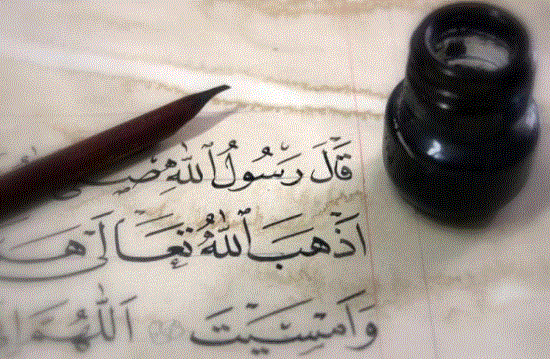 قَالَ رَسُولُ ٱللّٰهِ
اَذْهَبَ ٱللّٰهُ تَعَالَىٰ
وَاَمْسَيْتَ اَللّٰهُمَّ